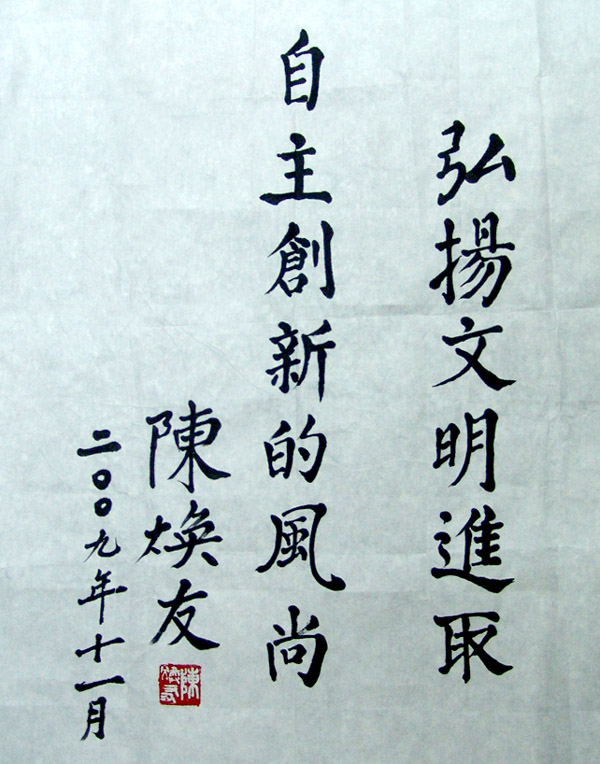 弘揚文明進取
自主創新的風尚
陳焕友
二〇〇九年十一月
陳焕友